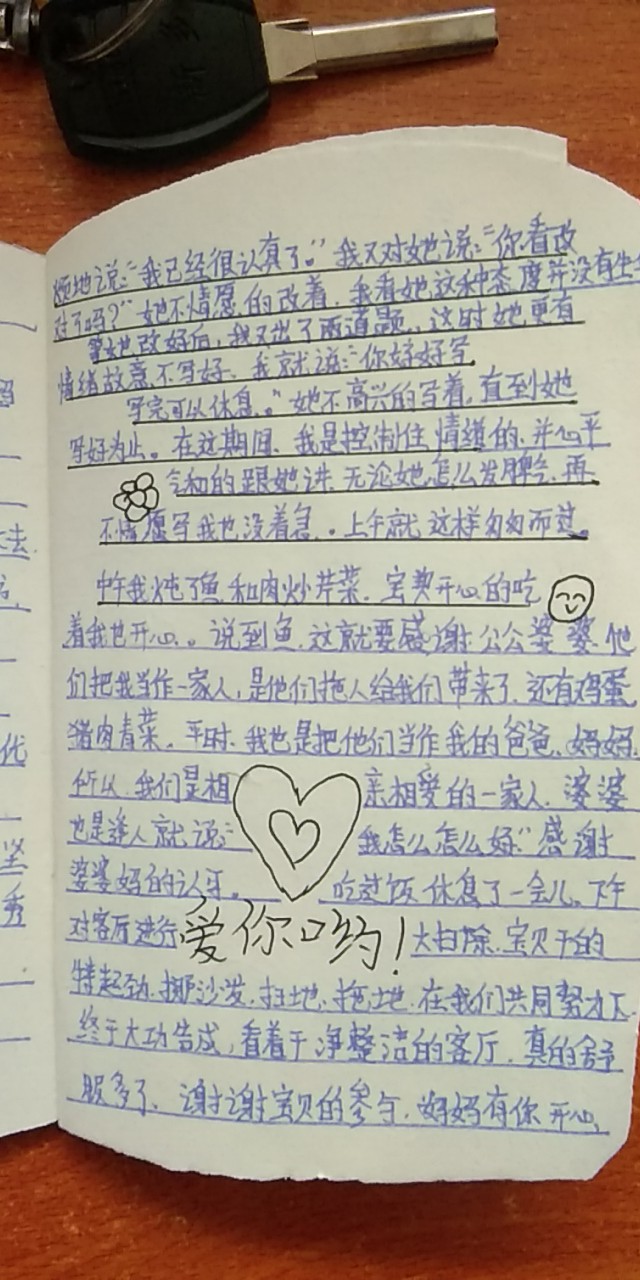 烦地说:"我已经很认真了。"我又对她说:"你看改
对了吗?"她不情愿的改着,我看她这种态度并没有生
等她改好后,我又出了两道题,这时她更有
情绪故意不写好,我就说:"你好好写
写完可以休息。"她不高兴的写着,直到她
写好为止。在这期间,我是控制住情绪的,并心平
气和的跟她讲,无论她怎么发脾气,再
不情愿写我也没着急。上午就这样匆匆而过。
中午我炖了鱼和肉炒芹菜,宝贝开心的吃
着我也开心。说到鱼,这就要感谢公公婆婆,他
们把我当作一家人,是他们拖人给我们带来了,还有鸡蛋
猪肉青菜。平时,我也是把他们当作我的爸爸、妈妈,
所以,我们是相亲相爱的一家人,婆婆
也是逢人就说:"我怎么怎么好"感谢
婆婆妈的认可。吃过饭,休息了一会儿,下午
对客厅进行大扫除,宝贝干的
爱你哟!
特起劲,挪沙发,扫地、拖地,在我们共同努力下
终于大功告成,看着干净整洁的客厅,真的舒
服多了,谢谢宝贝的参与,妈妈有你开心。